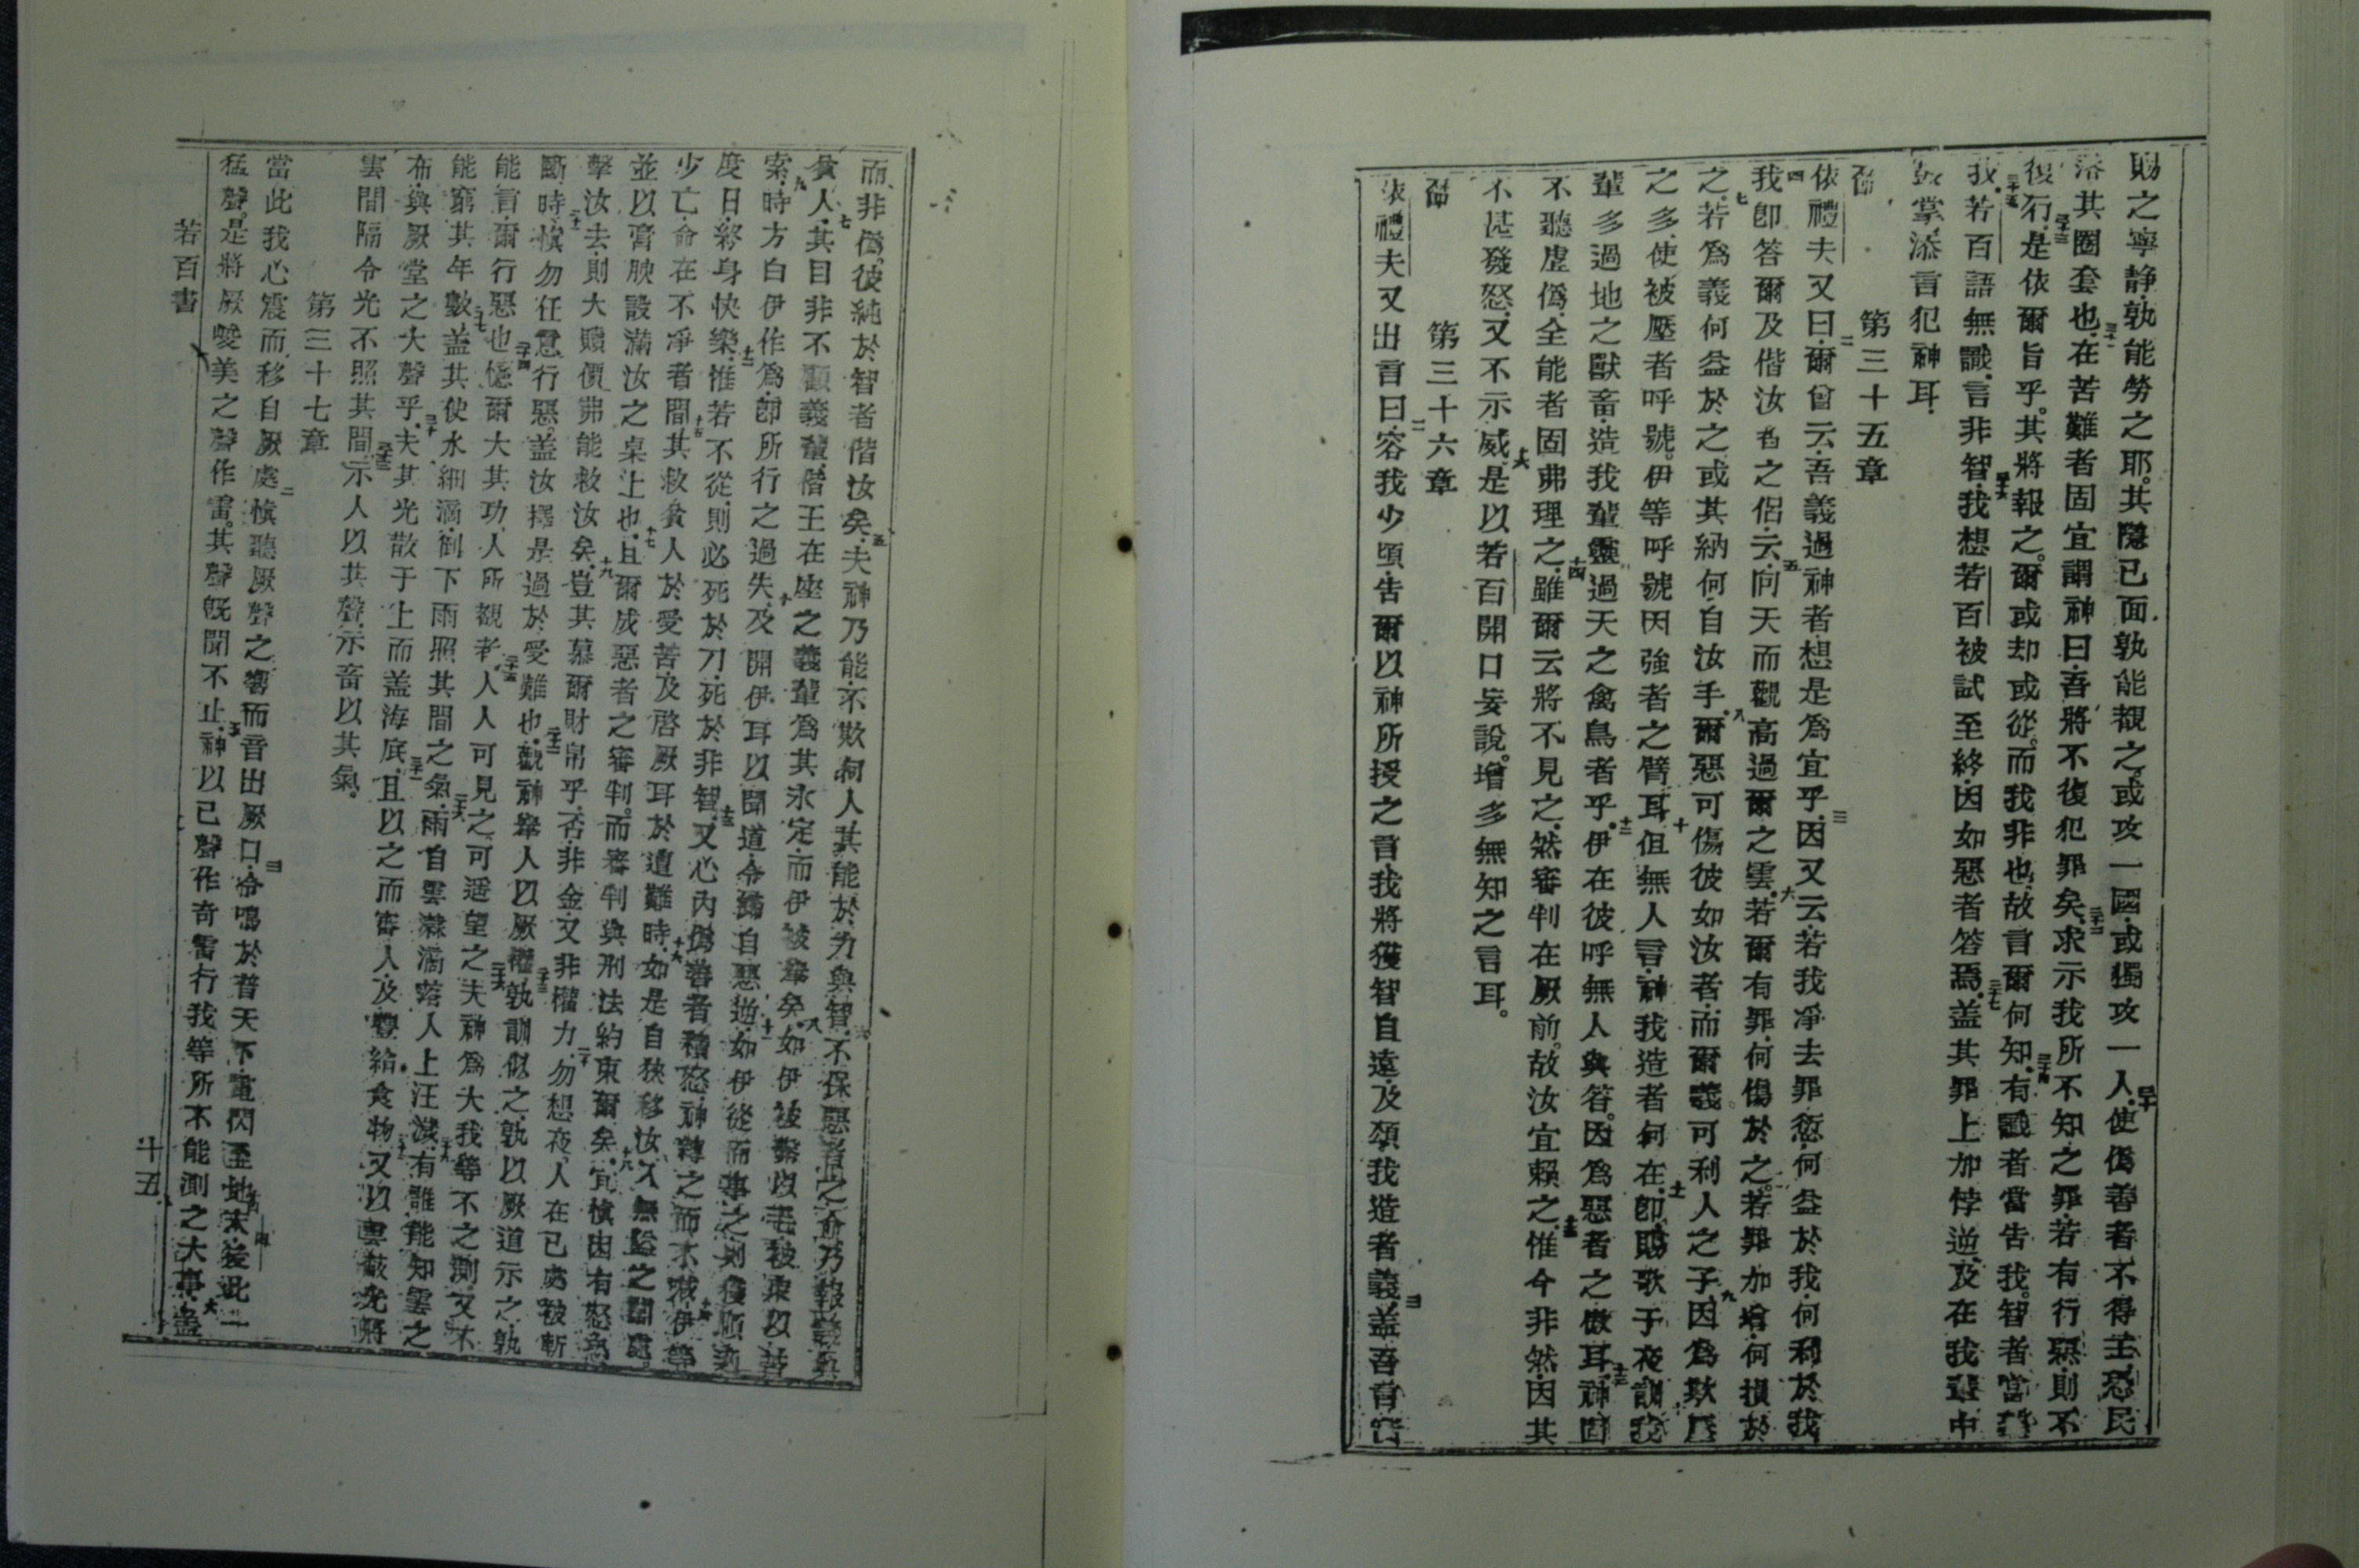 賜之寧靜孰能勞之耶其隱已面孰能覩之或攻一國或獨攻一人使僞善者不得王恐民
落其圈套也在苦難者固宜謂神曰吾將不復犯罪矣求示我所不知之罪若有行惡則不
復行是依爾旨乎其將報之爾或却或從而我非也故言爾何知有識者當告我智者當
我若百語無識言非智我想若百被試至終因如惡者答焉盖其罪上加悖逆及在我輩中
鼓掌添言犯神耳
第三十五章
節
依禮夫又曰爾曾云吾義過神者想是爲宜乎因又云若我凈去罪愆何益於我何利於我
我卽答爾及偕汝者之侶云向天而觀高過爾之雲若爾有罪何傷於之若罪加增何損於
之若爲義何益於之或其納何自汝手爾惡可傷彼如汝者而爾義可利人之子因爲欺壓
之多使被壓者呼號伊等呼號因強者之臂耳但無人言神我造者何在卽賜歌于夜訓我
輩多過地之獸畜造我輩靈過天之禽鳥者乎伊在彼呼無人與答因爲惡者之傲耳神固
不聽虛僞全能者固弗理之雖爾云將不見之然審判在厥前故汝宜賴之惟今非然因其
不甚發怒又不示威是以若百開口妄說增多無知之言耳
第三十六章
節
依禮夫又出言曰容我少頃吿爾以神所授之言我將獲智自遠及頌我造者義盖吾言實
而非僞彼純於智者偕汝矣夫神乃能不欺何人其能於力與智不保惡者之命乃報義與
貧人其目非不顧義輩偕王在座之義輩爲其永定而伊被舉矣如伊被繫以毛被束以苦
索時方白伊作爲卽所行之過失及開伊耳以聞道令歸自惡逆如伊從而事之則獲順利
度日終身快樂惟若不從則必死於刀死於非智又心內僞善者積怒神縛之而不喊伊等
少亡命在不凈者間其救貧人於受苦及啓厥耳於遭難時如是自狹移汝入無隘之闊處
並以膏腴設滿汝之桌上也且爾成惡者之審判而審判與刑法約束爾矣宜愼因有怒急
擊汝去則大贖價弗能救汝矣豈其慕爾財帛乎否非金又非權力勿想夜人在已處被斬
斷時愼勿任意行惡盖汝擇是過於受難也觀神舉人以厥權孰訓似之孰以厥道示之孰
能言爾行惡也憶爾大其功人所覩者人人可見之可遥望之夫神爲大我等不之測又不
能窮其年數盖其使水細滴倒下雨照其間之氣雨自雲潄滴落人上汪濊有誰能知雲之
布與厥堂之大聲乎夫其光散于上而盖海底且以之而審人及豐給食物又以雲蔽光將
雲間隔令光不照其間示人以其聲示畜以其氣
第三十七章
當此我心震而移自厥處愼聽厥聲之響而音出厥口令鳴於普天下電閃至地末後此一
猛聲是將厥嘜美之聲作雷其聲旣聞不止神以已聲作奇雷行我等所不能測之大事盖
若百書
十五